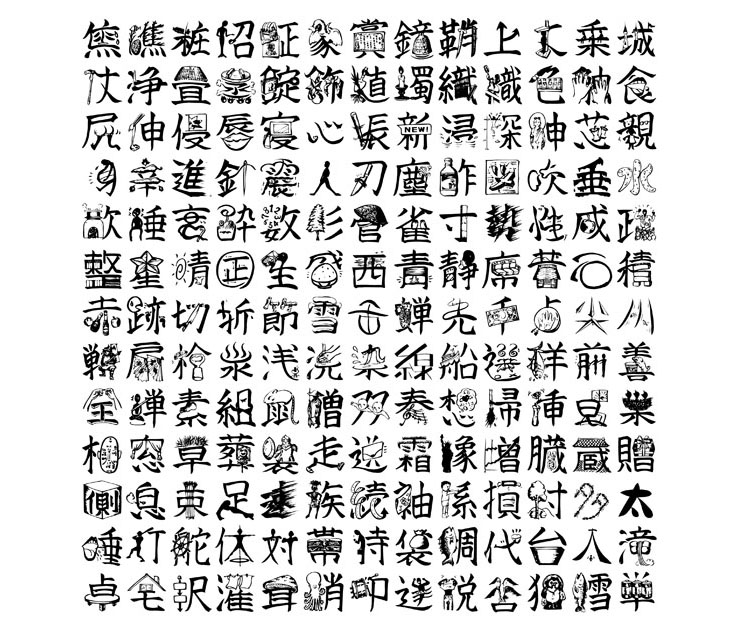 粧招証象賞鐘鞘上丈乗城
杖浄畳蒸錠飾植燭織色触食
尻伸唇寝心振新浸深神芯親
NEW!
身辛進針震人刃塵酢図吹垂水
炊睡衰酔数杉菅雀寸勢性成政
整星晴正生盛西青静席石積
赤跡切折節雪舌蝉先千占尖川
扇栓泉浅洗染線船選鮮前善
全禅素組鼠僧双奏想掃挿巣
相窓草葬装走送霜像増臓蔵贈
側息束足速族続袖孫損多太
唾打舵体対帯待袋鯛代台大滝
卓宅沢濯茸蛸叩達脱谷狸鱈単